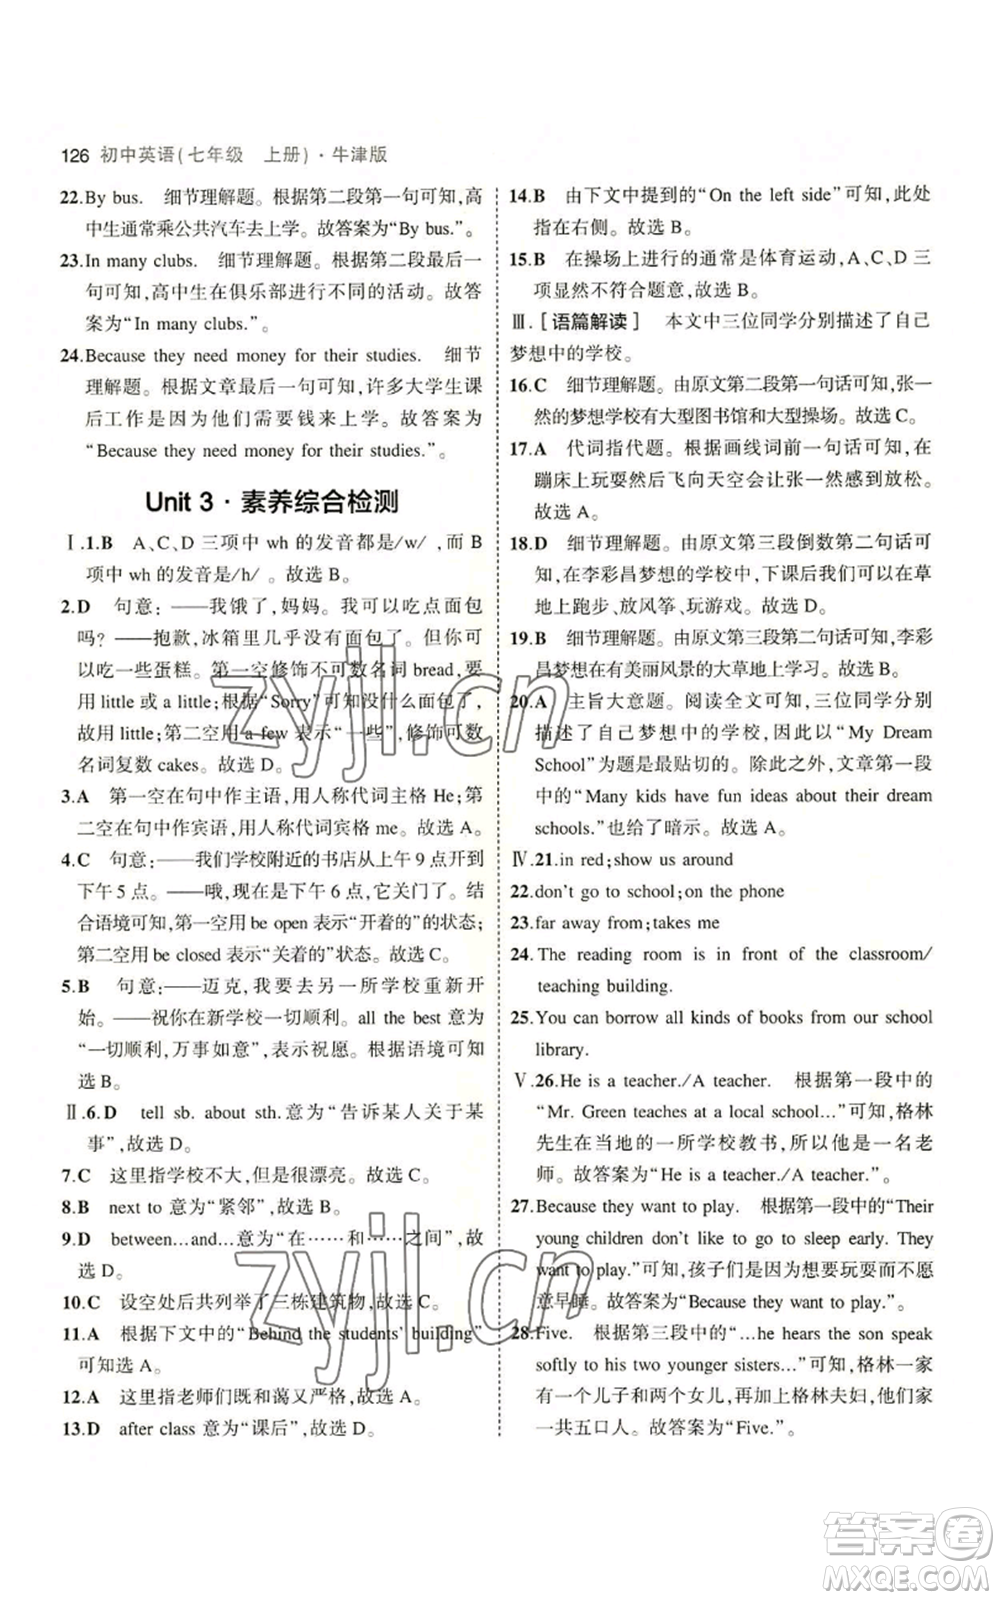 126 初中英语(七年级　上册)·牛津版
22.By bus.　细节理解题。根据第二段第一句可知,高
中生通常乘公共汽车去上学。故答案为“By bus.”。
23.In many clubs.　细节理解题。根据第二段最后一
句可知,高中生在俱乐部进行不同的活动。故答
案为“In many clubs.”。
24.Because they need money for their studies.　细节
理解题。根据文章最后一句可知,许多大学生课
后工作是因为他们需要钱来上学。故答案为
“Because they need money for their studies.”。
Unit 3·素养综合检测
Ⅰ.1.B　A、C、D 三项中 wh 的发音都是/w/,而 B
项中 wh 的发音是/h/。故选 B。
2.D　句意:——我饿了,妈妈。我可以吃点面包
吗? ——抱歉,冰箱里几乎没有面包了。但你可
以吃一些蛋糕。第一空修饰不可数名词 bread,要
用 little 或 a little;根据“Sorry”可知没什么面包了,
故用 little;第二空用 a few 表示“一些”,修饰可数
名词复数 cakes。故选 D。
3.A　第一空在句中作主语,用人称代词主格 He;第
二空在句中作宾语,用人称代词宾格 me。故选 A。
4.C　句意:——我们学校附近的书店从上午 9 点开到
下午 5 点。——哦,现在是下午 6 点,它关门了。结
合语境可知,第一空用 be open 表示“开着的”的状态;
第二空用 be closed 表示“关着的”状态。故选 C。
5.B　句意:——迈克,我要去另一所学校重新开
始。——祝你在新学校一切顺利。all the best 意为
“一切顺利,万事如意”,表示祝愿。根据语境可知
选 B。
Ⅱ.6.D　tell sb. about sth.意为“告诉某人关于某
事”,故选 D。
7.C　这里指学校不大,但是很漂亮。故选 C。
8.B　next to 意为“紧邻”,故选 B。
9.D　between...and...意为“在……和……之间”,故
选 D。
10.C　设空处后共列举了三栋建筑物,故选 C。
11.A　根据下文中的“Behind the students' building”
可知选 A。
12.A　这里指老师们既和蔼又严格,故选 A。
13.D　after class 意为“课后”,故选 D。
14.B　由下文中提到的“On the left side”可知,此处
指在右侧。故选 B。
15.B　在操场上进行的通常是体育运动,A、C、D 三
项显然不符合题意,故选 B。
Ⅲ.[语篇解读]　本文中三位同学分别描述了自己
梦想中的学校。
16.C　细节理解题。由原文第二段第一句话可知,张一
然的梦想学校有大型图书馆和大型操场。故选 C。
17.A　代词指代题。根据画线词前一句话可知,在
蹦床上玩耍然后飞向天空会让张一然感到放松。
故选 A。
18.D　细节理解题。由原文第三段倒数第二句话可
知,在李彩昌梦想的学校中,下课后我们可以在草
地上跑步、放风筝、玩游戏。故选 D。
19.B　细节理解题。由原文第三段第二句话可知,李彩
昌梦想在有美丽风景的大草地上学习。故选 B。
20.A　主旨大意题。阅读全文可知,三位同学分别
描述了自己梦想中的学校,因此以“My Dream
School”为题是最贴切的。除此之外,文章第一段
中的“Many kids have fun ideas about their dream
schools.”也给了暗示。故选 A。
Ⅳ.21.in red;show us around
22.don't go to school;on the phone
23.far away from;takes me
24.The reading room is in front of the classroom/
teaching building.
25.You can borrow all kinds of books from our school
library.
Ⅴ.26.He is a teacher./A teacher.　根据第一段中的
“Mr. Green teaches at a local school...”可知,格林
先生在当地的一所学校教书,所以他是一名老
师。故答案为“He is a teacher./A teacher.”。
27.Because they want to play.　根据第一段中的“Their
young children don't like to go to sleep early. They
want to play.”可知,孩子们是因为想要玩耍而不愿
意早睡。故答案为“Because they want to play.”。
28.Five.　根据第三段中的“...he hears the son speak
softly to his two younger sisters...”可知,格林一家
有一个儿子和两个女儿,再加上格林夫妇,他们家
一共五口人。故答案为“Five.”。
zyjl.cn
zyjl.cn
答案卷
MXQE.COM